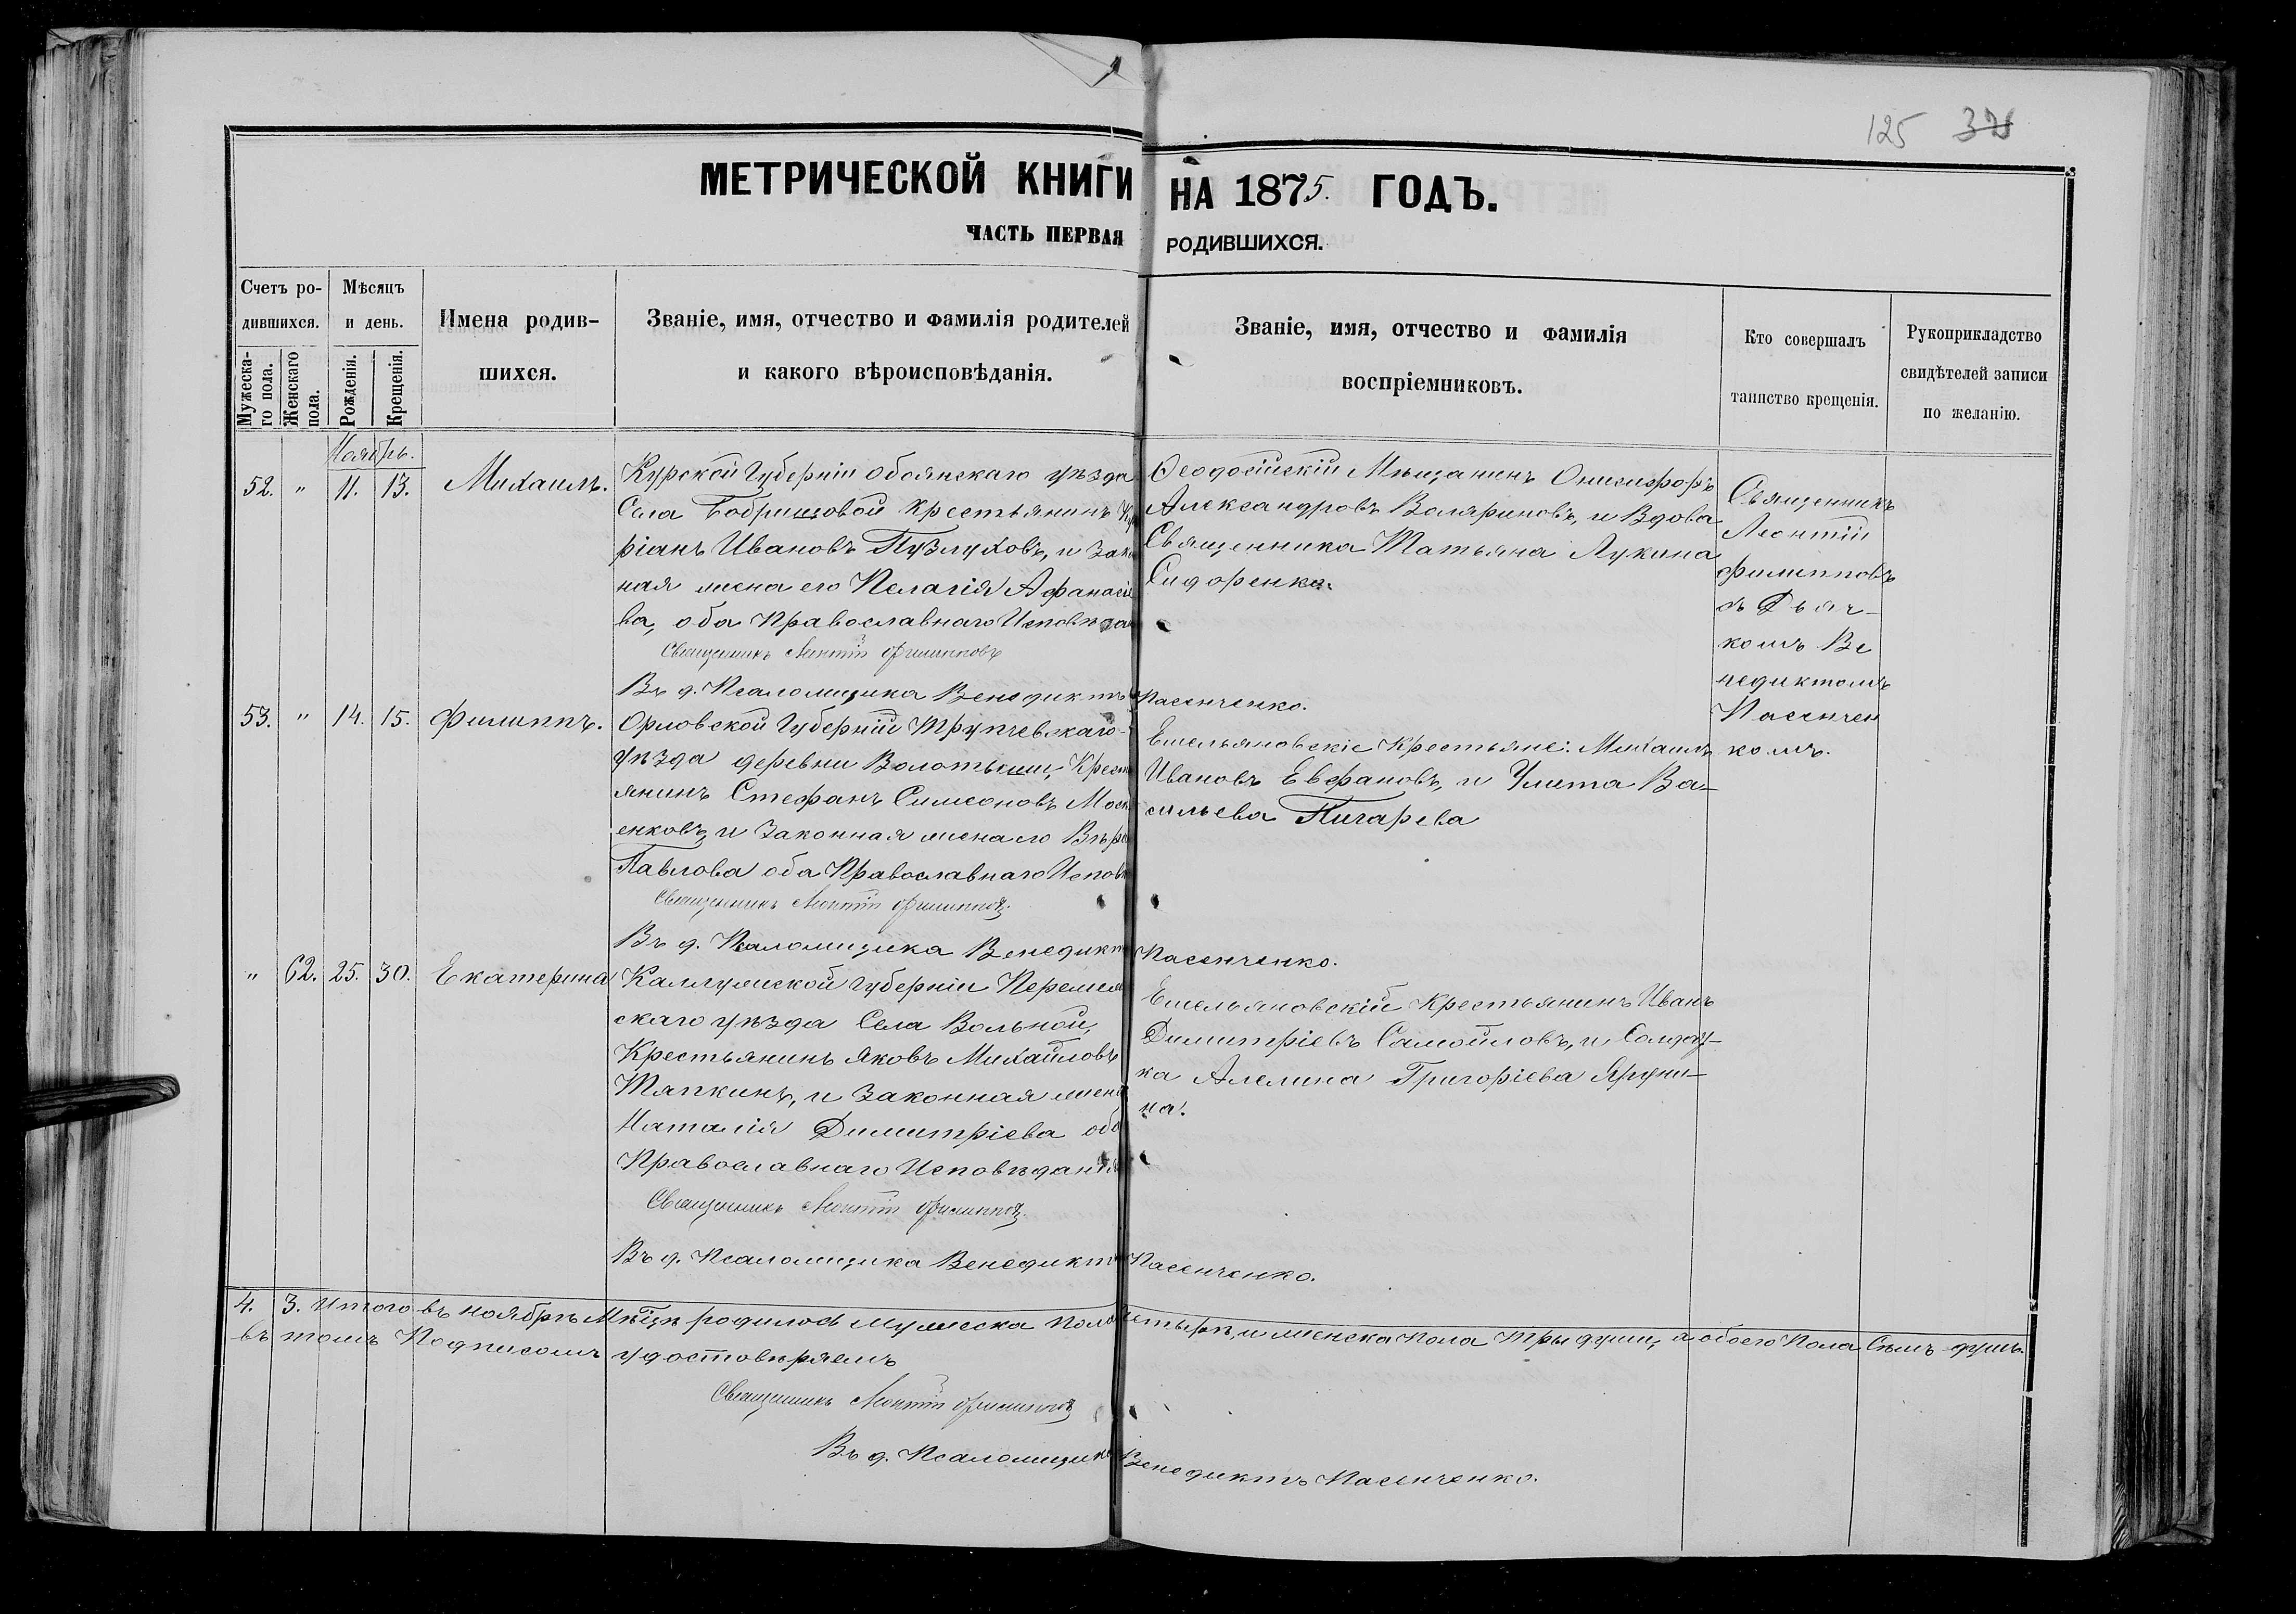 125 371
МЕТРИЧЕСКОЙ КНИГИ НА 1875. ГОДЪ.
ЧАСТЬ ПЕРВАЯ РОДИВШИХСЯ.
Счетъ ро-
дившихся.
Мужеска-
го пола.
Женскаго
пола.
Мѣсяцъ
и день.
Рожденія.
Крещенія.
Имена родив-
шихся.
Званіе, имя, отчество и фамилія родителей
и какого вѣроисповѣданія.
Званіе, имя, отчество и фамилія
воспріемниковъ.
Кто совершалъ
таинство крещенія.
Рукоприкладство
свидѣтелей записи
по желанію.
Ноябрь.
52. " 11. 13. Михаилъ.
Курской Губерніи Обоянскаго уѣзда
Села Бобрышовой Крестьянинъ
ріанъ Ивановъ Пузлуховъ, и зако
ная жена его Пелагія Афанасіе
ва, оба Православнаго Исповѣда
Священникъ Леонтій Филипповъ
Въ д. Псаломщика Венедиктъ Пасенченко.
Ѳеодосійскій Мѣщанинъ Онисифоръ
Александровъ Воляриновъ, и Вдова
Священника Татьяна Лукина
Сидоренко.
Священникъ
Леонтій
Филипповъ
съ Дьяч-
комъ Ве
недиктомъ
Пасенчен
комъ.
53. " 14. 15. Филиппъ.
Орловской Губерніи Трупчевскаго
уѣзда деревни Волотьки, Крест
янинъ Стефанъ Симеоновъ Мос
енковъ, и Законная жена его Вѣра
Павлова оба Православнаго Исповѣ
Священникъ Леонтій Филипповъ.
Въ д. Псаломщика Венедиктъ Пасенченко.
Емельяновскіе Крестьяне: Михаилъ
Ивановъ Евфановъ, и Улита Ва-
сильева Пигарева
" 62. 25. 30. Екатерина
Каллужской Губерніи Перемы
скаго уѣзда Села Вольной,
Крестьянинъ Яковъ Михайловъ
Тяпкинъ, и Законная жена
Наталія Димитріева оба
Православнаго Исповѣданія
Священникъ Леонтій Филипповъ.
Въ д. Псаломщика Венедиктъ Пасенченко.
Емельяновскій Крестьянинъ Иванъ
Димитріевъ Самойловъ, и Солдат-
ка Акелина Григоріева Яруни-
на.
4. 3. Итого въ ноябрѣ Мѣсяцѣ родилось мужеска пола четырѣ, и женска пола Тры души, а обоего Пола Сѣмъ душъ.
въ томъ Подписомъ удостовѣряемъ
Священникъ Леонтій Филипповъ
Въ д. Псаломщика Венедиктъ Пасенченко.